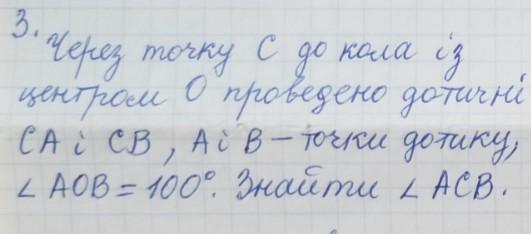 3.
Через точку С до кола із
центром О проведено дотичні
СА і СВ, А і В – точки дотику,
∠АОВ = 100°. Знайти ∠АСВ.